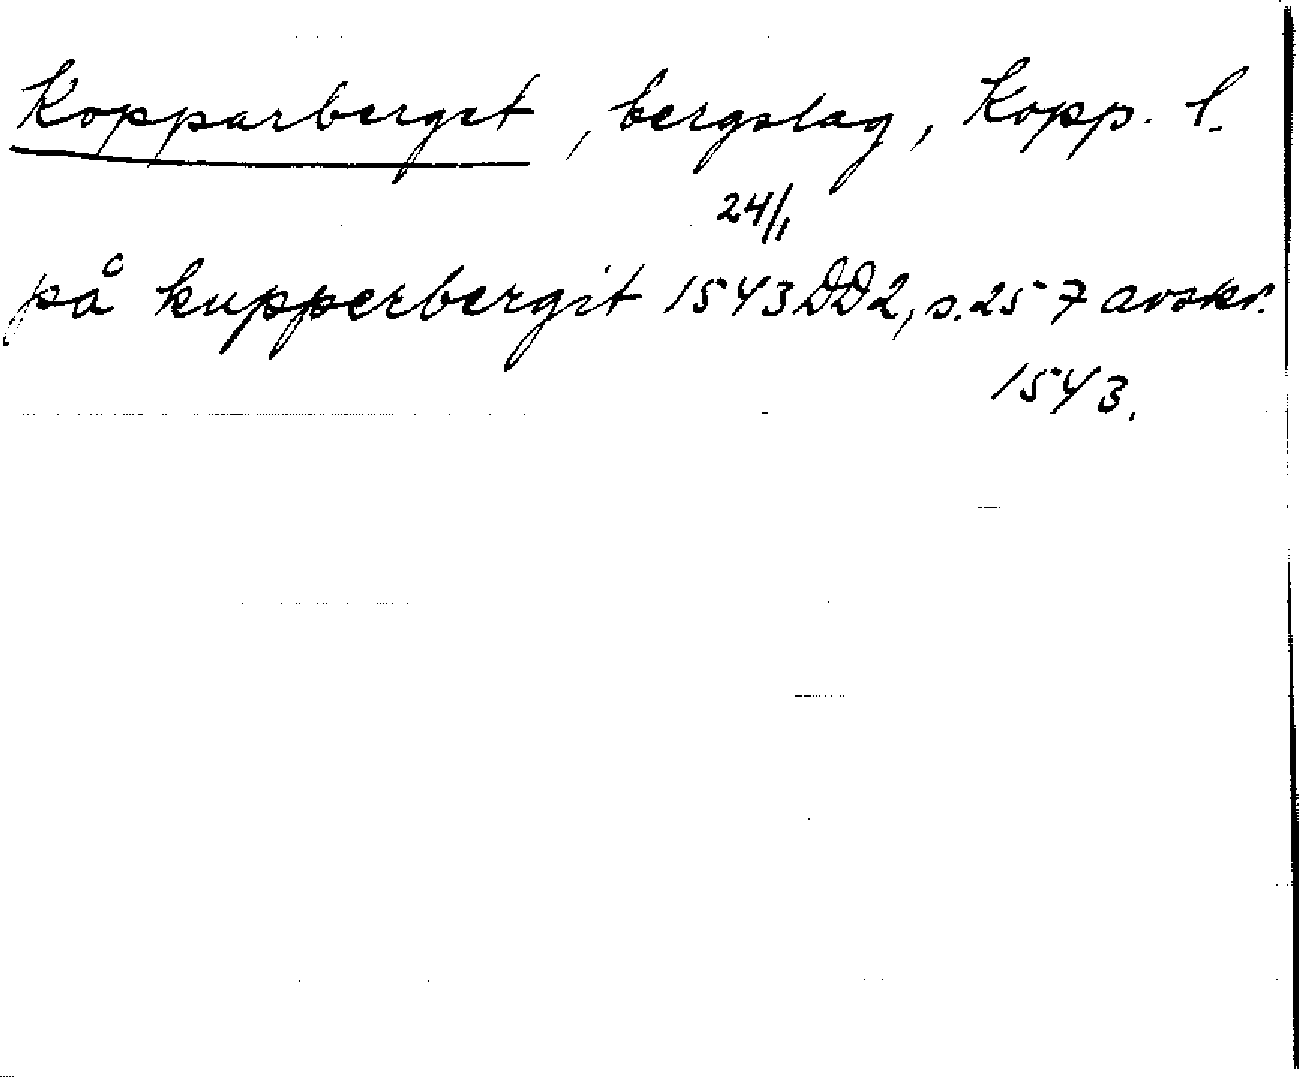 Kopparberget, bergslag, Kopp. l.
24/1
på kupperbergit 1543 DD2, s. 257 avskr.
1543.